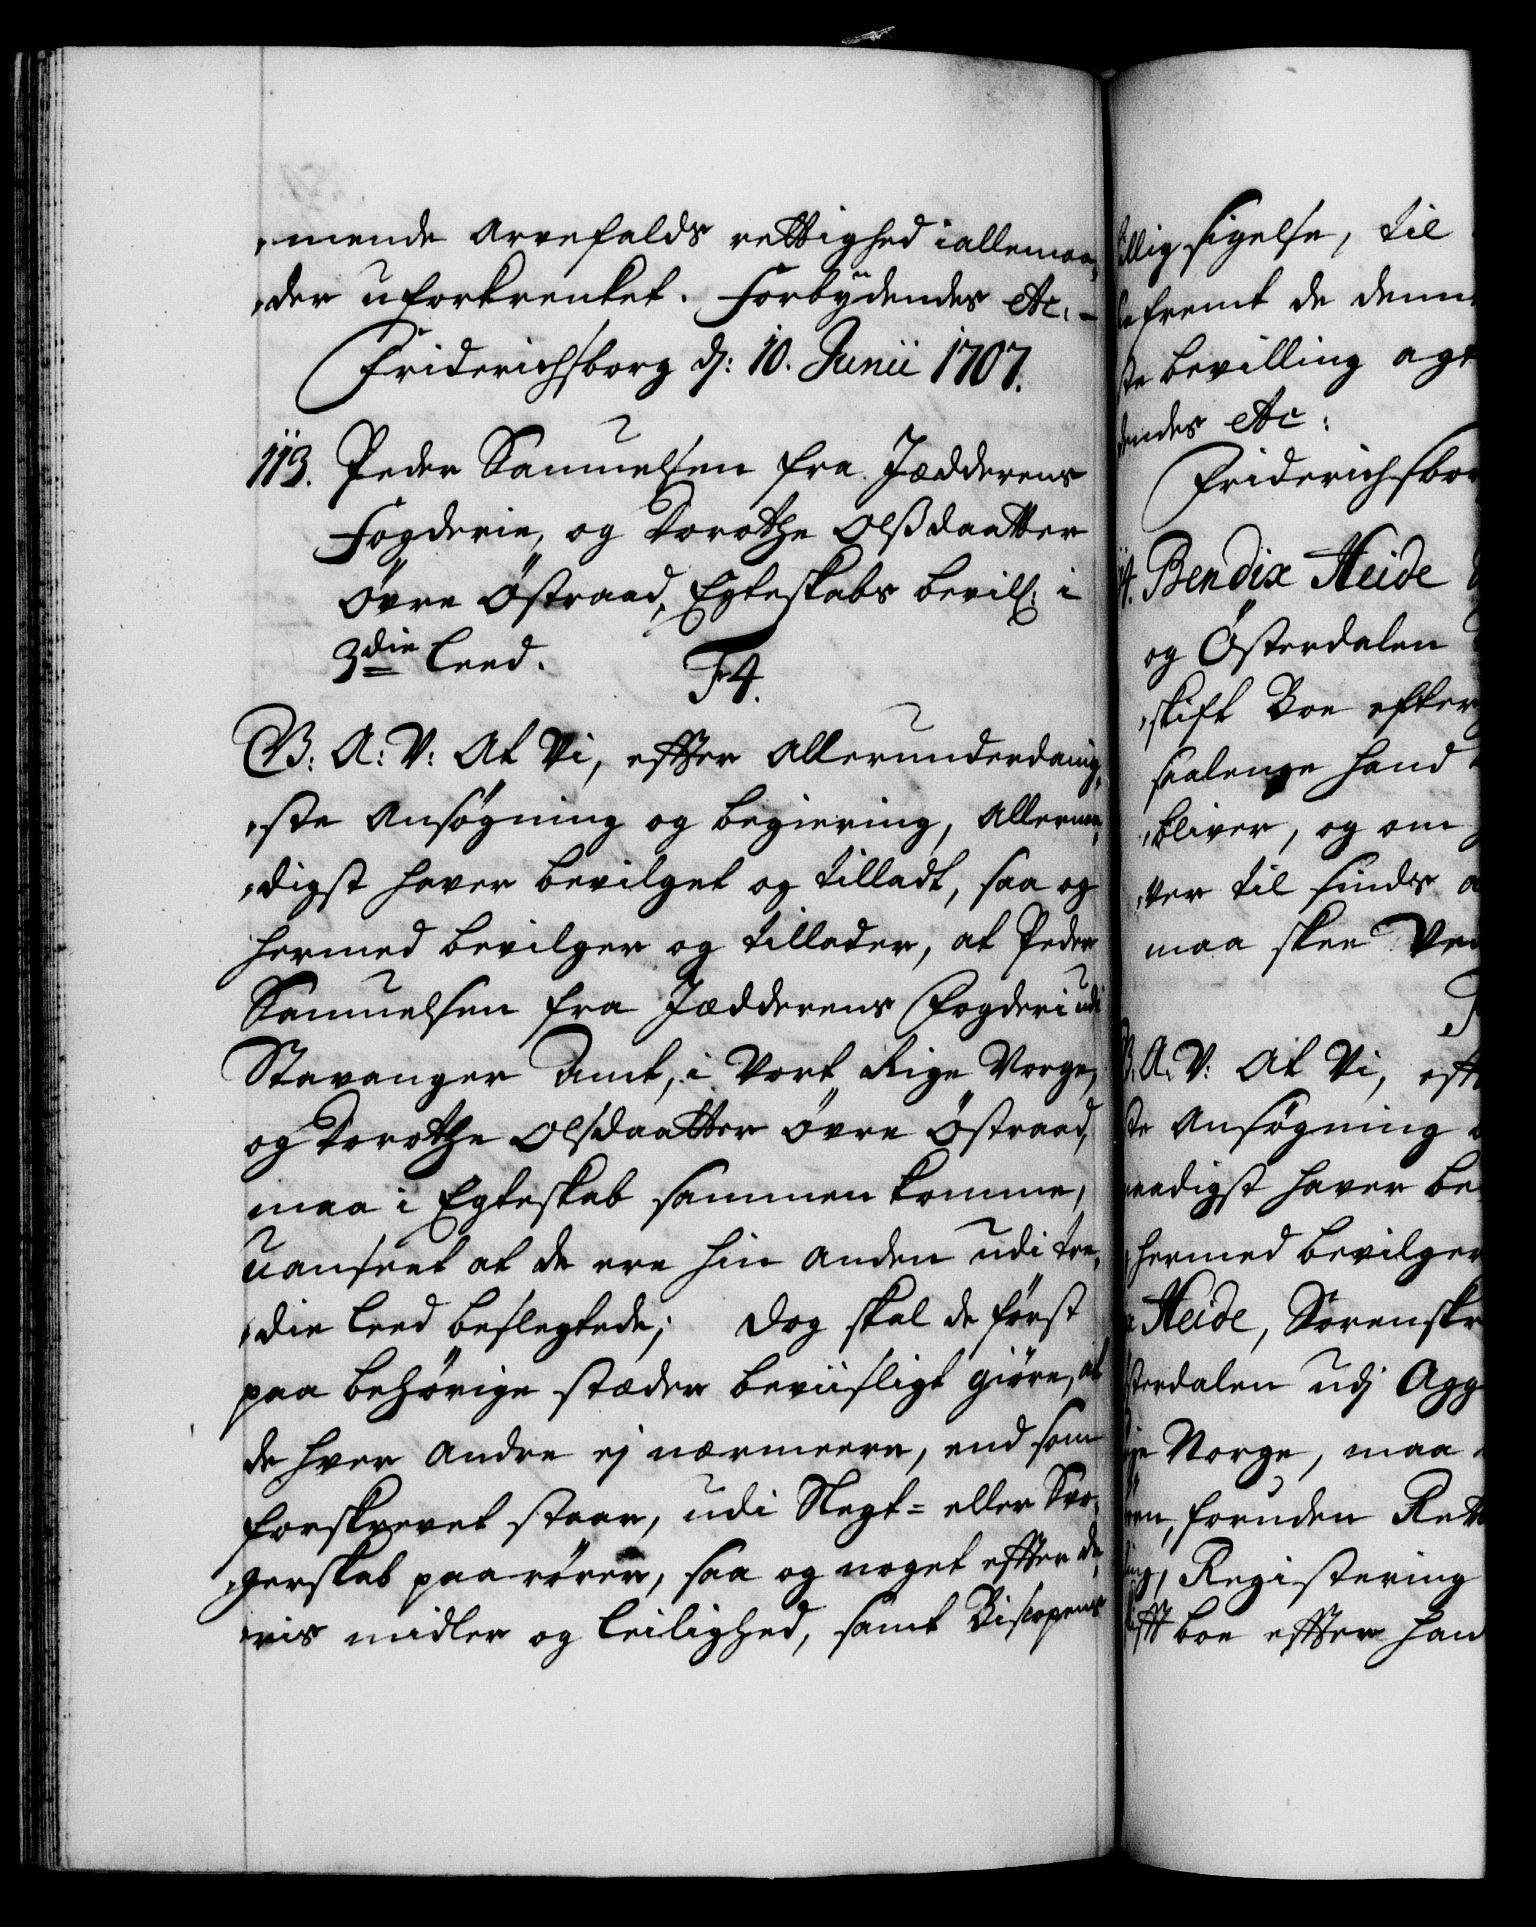 mende Arvefalds rettighed i allemaa,
,der uforkrenket. Forbydendes etc. –
Friderichsborg d: 10. Junii 1707.
113. Peder Samuelsen fra Jædderens
Fogderie, og Dorothe Olßdaatter
Øvre Østraad, Egteskabs bevill: i
3die Leed.
F4.
G. A: V: At Vi, effter Allerunderdanig,
,ste Ansøgning og begiering, Allernaa,
,digst haver bevilget og tilladt, saa og
hermed bevilger og tillader, at Peder
Samuelsen fra Jædderens Fogderi udi
Stavanger Amt, i Vort Rige Norge,
og Dorothe Olsdaatter Øvre Østraad,
maa i Egteskab sammen komme,
uanseet at de ere hin anden udi tre,
,die Leed beslegtede; Dog skal de først
paa behørige stæder beviisligt giøre, at
de hver andre ej nærmeere, end som
forskrevet staar, udi Slegt= eller Svo,
,gerskab paarører, saa og noget effter de,
,ris midler og leilighed, samt Biscopens
llig sigelse, til
fremt de denne
ste bevilling agt
dendes etc:
Friderichsbor
114. Bendix Heide
og Østerdalen
,skift Boe efter
saalenge hand
,bliver, og om
,ver til sinds a
maa skee Ved
F
G. A: V: At Vi, eff
ste Ansøgning
naadigst haver be
hermed bevilger
Heide, Sorenskr
sterdalen udj Agg
ge Norge, maa
ren, foruden Rett
ing, Registering
ifft boe effter han